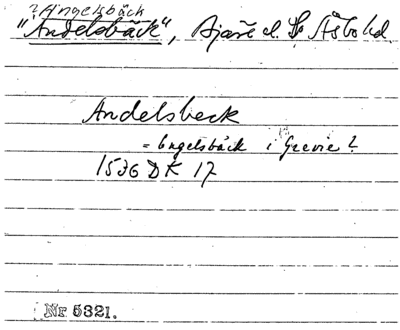 ? Ängelsbäck
"Andelsbäck", Bjäre el. S. Åsbo hd.
Andelsbeck
= Engelsbäck i Grevie?
1536 DK 17
Nr 5321.